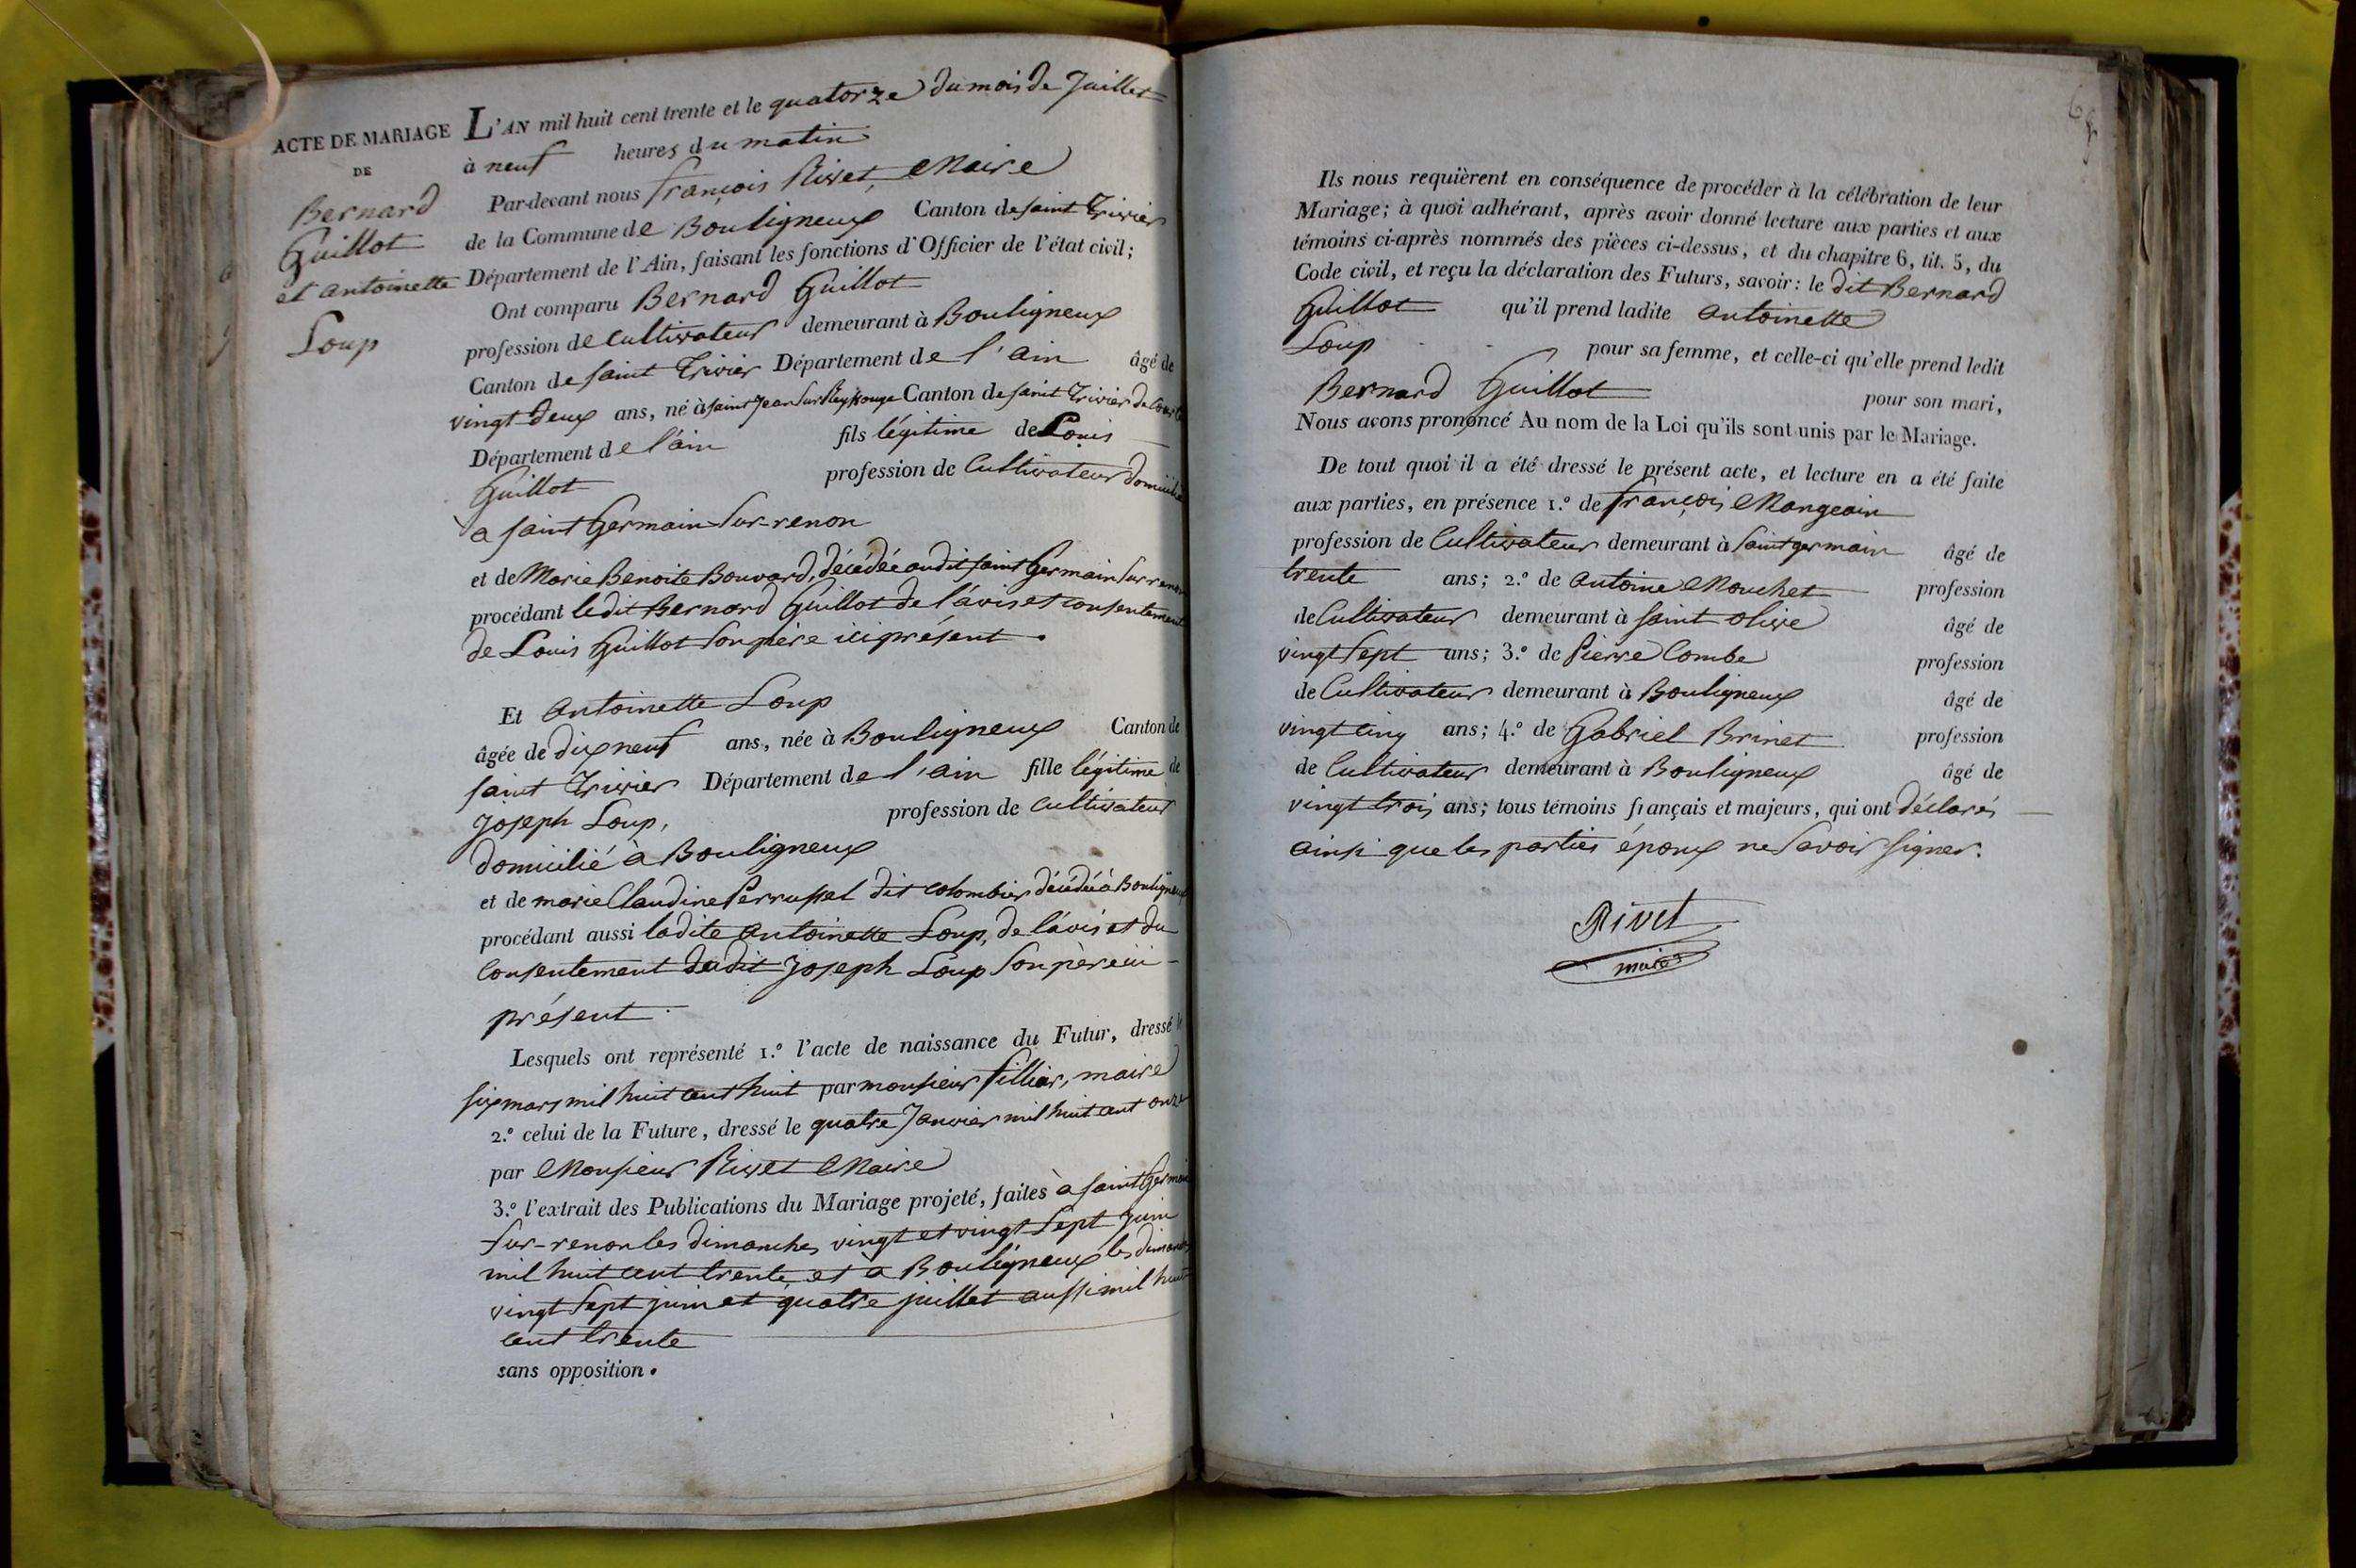 ACTE DE MARIAGE
DE
Bernard
Guillot
et antoinette
Loup
L'AN mil huit cent trente et le quatorze du mois de Juillet
à neuf heures du matin
Par-devant nous françois Rivet, Maire
de la Commune de Bouligneux Canton de saint Trivier
Département de l'Ain, faisant les fonctions d'Officier de l'état civil;
Ont comparu Bernard Guillot
profession de Cultivateur demeurant à Bouligneux
Canton de saint Trivier Département de l'ain âgé de
vingt deux ans, né à saint Jean sur Reyssouge Canton de saint Trivier de Courtes
Département de l'ain fils légitime de Louis
Guillot profession de Cultivateur domicilié
a saint Germain sur-renon
et de Marie Benoite Bouvard, décédée audit saint Germain sur renon
procédant ledit Bernard Guillot de l'avis et consentement
de Louis Guillot son père ici présent.
Et antoinette Loup
âgée de dix neuf ans, née à Bouligneux Canton de
saint Trivier Département de l'ain fille légitime de
Joseph Loup, profession de cultivateur
domicilié à Bouligneux
et de marie Claudine Perrussel dit colombier décédée à Bouligneux
procédant aussi ladite antoinette Loup, de l'avis et du
Consentement dudit Joseph Loup son père ici
présent.
Lesquels ont représenté 1.º l'acte de naissance du Futur, dressé le
six mars mil huit cent huit par monsieur fillier, maire
2.º celui de la Future, dressé le quatre Janvier mil huit cent onze
par Monsieur Rivet Maire
3.º l'extrait des Publications du Mariage projeté, faites à saint Germain
sur-renon les dimanches vingt et vingt sept Juin
mil huit cent trente et a Bouligneux les dimanches
vingt sept juin et quatre juillet aussi mil huit
cent trente
sans opposition.
Ils nous requièrent en conséquence de procéder à la célébration de leur
Mariage; à quoi adhérant, après avoir donné lecture aux parties et aux
témoins ci-après nommés des pièces ci-dessus, et du chapitre 6, tit. 5, du
Code civil, et reçu la déclaration des Futurs, savoir: le dit Bernard
Guillot qu'il prend ladite antoinette
Loup pour sa femme, et celle-ci qu'elle prend ledit
Bernard Guillot pour son mari,
Nous avons prononcé Au nom de la Loi qu'ils sont unis par le Mariage.
De tout quoi il a été dressé le présent acte, et lecture en a été faite
aux parties, en présence 1.º de françois Mangeain
profession de Cultivateur demeurant à saint germain âgé de
trente ans; 2.º de antoine Mouchet profession
de Cultivateur demeurant à saint olive âgé de
vingt sept ans; 3.º de Pierre Combe profession
de Cultivateur demeurant à Bouligneux âgé de
vingt cinq ans; 4.º de Gabriel Brinet profession
de Cultivateur demeurant à Bouligneux âgé de
vingt trois ans; tous témoins français et majeurs, qui ont déclarés
ainsi que les parties époux ne savoir signer.
Rivet
maire